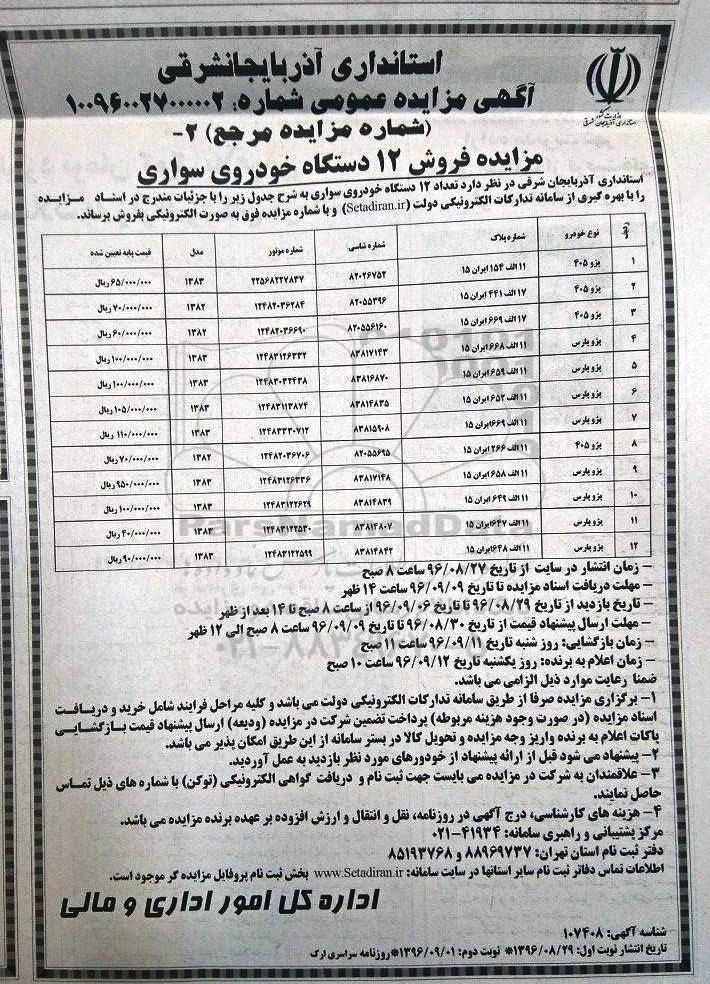 استانداری آذربایجانشرقی
آگهی مزایده عمومی شماره: ۱۰۰۹۶۰۰۲۷۰۰۰۰۰۲
(شماره مزایده مرجع) ۲-
مزایده فروش ۱۲ دستگاه خودروی سواری
وزارت کشور
استانداری آذربایجان شرقی
استانداری آذربایجان شرقی در نظر دارد تعداد ۱۲ دستگاه خودروی سواری به شرح جدول زیر را با جزئیات مندرج در اسناد مزایده
را با بهره گیری از سامانه تدارکات الکترونیکی دولت (Setadiran.ir) و با شماره مزایده فوق به صورت الکترونیکی بفروش برساند.
ردیف نوع خودرو شماره پلاک شماره شاسی شماره موتور مدل قیمت پایه تعیین شده
۱ پژو ۴۰۵ ۱۱ الف ۱۵۴ ایران ۱۵ ۸۲۰۲۶۷۵۲ ۲۲۵۶۸۲۲۷۸۳۷ ۱۳۸۳ ۶۵/۰۰۰/۰۰۰ ریال
۲ پژو ۴۰۵ ۱۷ الف ۴۴۱ ایران ۱۵ ۸۲۰۵۵۳۹۶ ۱۲۴۸۲۰۳۶۲۸۴ ۱۳۸۲ ۷۰/۰۰۰/۰۰۰ ریال
۳ پژو ۴۰۵ ۱۷ الف ۶۶۹ ایران ۱۵ ۸۲۰۵۵۶۱۶۰ ۱۲۴۸۲۰۳۶۶۹۰ ۱۳۸۲ ۶۰/۰۰۰/۰۰۰ ریال
۴ پژو پارس ۱۱ الف ۶۶۸ ایران ۱۵ ۸۳۸۱۷۱۴۳ ۱۲۴۸۳۱۲۶۳۳۲ ۱۳۸۳ ۱۰۰/۰۰۰/۰۰۰ ریال
۵ پژو پارس ۱۱ الف ۶۵۹ ایران ۱۵ ۸۳۸۱۶۸۷۰ ۱۲۴۸۳۰۳۲۴۳۸ ۱۳۸۳ ۱۰۰/۰۰۰/۰۰۰ ریال
۶ پژو پارس ۱۱ الف ۶۵۲ ایران ۱۵ ۸۳۸۱۴۸۳۵ ۱۲۴۸۳۱۱۳۸۷۴ ۱۳۸۳ ۱۰۵/۰۰۰/۰۰۰ ریال
۷ پژو پارس ۱۱ الف ۶۶۹ ایران ۱۵ ۸۳۸۱۵۹۰۸ ۱۲۴۸۳۳۳۰۷۱۲ ۱۳۸۳ ۱۱۰/۰۰۰/۰۰۰ ریال
۸ پژو ۴۰۵ ۱۱ الف ۲۶۶ ایران ۱۵ ۸۲۰۵۵۶۹۵ ۱۲۴۸۲۰۳۶۷۰۶ ۱۳۸۲ ۷۰/۰۰۰/۰۰۰ ریال
۹ پژو پارس ۱۱ الف ۶۵۸ ایران ۱۵ ۸۳۸۱۷۱۴۸ ۱۲۴۸۳۱۲۶۳۳۶ ۱۳۸۳ ۹۵۰/۰۰۰/۰۰۰ ریال
۱۰ پژو پارس ۱۱ الف ۶۴۹ ایران ۱۵ ۸۳۸۱۴۸۳۹ ۱۲۴۸۳۱۲۲۶۲۹ ۱۳۸۳ ۱۰۰/۰۰۰/۰۰۰ ریال
۱۱ پژو پارس ۱۱ الف ۶۴۷ ایران ۱۵ ۸۳۸۱۴۸۰۷ ۱۲۴۸۳۱۲۲۵۳۰ ۱۳۸۳ ۴۰/۰۰۰/۰۰۰ ریال
۱۲ پژو پارس ۱۱ الف ۶۴۸ ایران ۱۵ ۸۳۸۱۴۸۴۲ ۱۲۴۸۳۱۲۲۵۹۹ ۱۳۸۳ ۹۰/۰۰۰/۰۰۰ ریال
– زمان انتشار در سایت از تاریخ ۹۶/۰۸/۲۷ ساعت ۸ صبح
– مهلت دریافت اسناد مزایده تا تاریخ ۹۶/۰۹/۰۹ ساعت ۱۴ ظهر
– تاریخ بازدید از تاریخ ۹۶/۰۸/۲۹ تا تاریخ ۹۶/۰۹/۰۶ از ساعت ۸ صبح تا ۱۴ بعد از ظهر
– مهلت ارسال پیشنهاد قیمت از تاریخ ۹۶/۰۸/۳۰ تا تاریخ ۹۶/۰۹/۰۹ ساعت ۸ صبح الی ۱۲ ظهر
– زمان بازگشایی: روز شنبه تاریخ ۹۶/۰۹/۱۱ ساعت ۱۱ صبح
– زمان اعلام به برنده: روز یکشنبه تاریخ ۹۶/۰۹/۱۲ ساعت ۱۰ صبح
ضمنا رعایت موارد ذیل الزامی می باشد.
۱– برگزاری مزایده صرفا از طریق سامانه تدارکات الکترونیکی دولت می باشد و کلیه مراحل فرایند شامل خرید و دریافت
اسناد مزایده (در صورت وجود هزینه مربوطه) پرداخت تضمین شرکت در مزایده (ودیعه) ارسال پیشنهاد قیمت بازگشایی
پاکات اعلام به برنده واریز وجه مزایده و تحویل کالا در بستر سامانه از این طریق امکان پذیر می باشد.
۲– پیشنهاد می شود قبل از ارائه پیشنهاد از خودورهای مورد نظر بازدید به عمل آوردید.
۳– علاقمندان به شرکت در مزایده می بایست جهت ثبت نام و دریافت گواهی الکترونیکی (توکن) با شماره های ذیل تماس
حاصل نمایند.
۴– هزینه های کارشناسی، درج آگهی در روزنامه، نقل و انتقال و ارزش افزوده بر عهده برنده مزایده می باشد.
مرکز پشتیبانی و راهبری سامانه: ۴۱۹۳۴-۰۲۱
دفتر ثبت نام استان تهران: ۸۸۹۶۹۷۳۷ و ۸۵۱۹۳۷۶۸
اطلاعات تماس دفاتر ثبت نام سایر استانها در سایت سامانه: www.Setadiran.ir بخش ثبت نام پروفایل مزایده گر موجود است.
اداره کل امور اداری و مالی
شناسه آگهی: ۱۰۷۴۰۸
تاریخ انتشار نوبت اول: ۱۳۹۶/۰۸/۲۹* نوبت دوم: ۱۳۹۶/۰۹/۰۱*روزنامه سراسری ارک